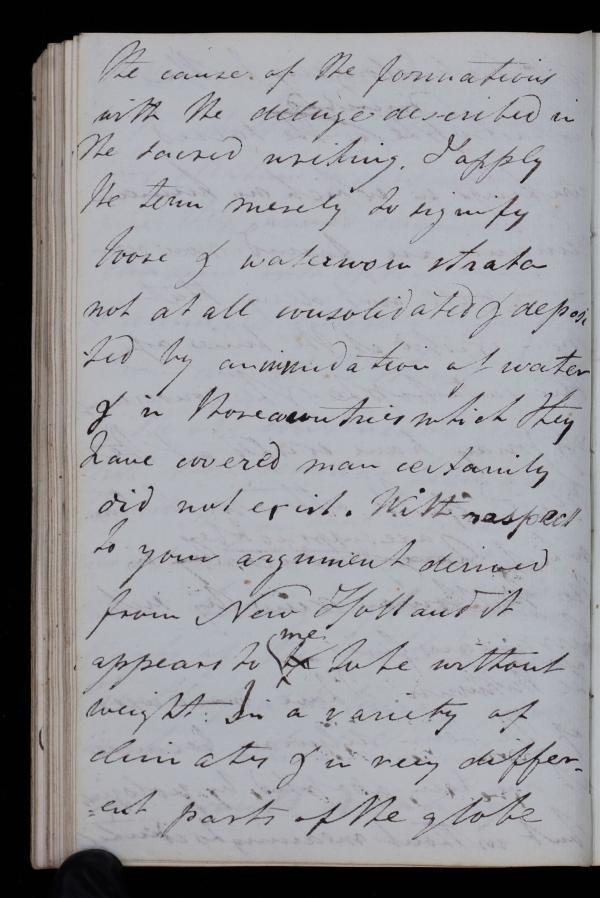 the cause of the formations
with the deluge described in
the sacred writing. I apply
the term merely to signify
loose & waterworn strata
not at all consolidated & deposi
-ted by an inundation of water
& in those countries which they
have covered man certainly
did not exist. With respect
to your argument derived
from New Holland it
appears to me to be without
weight. In a variety of
climates & in very differ-
=ent parts of the globe